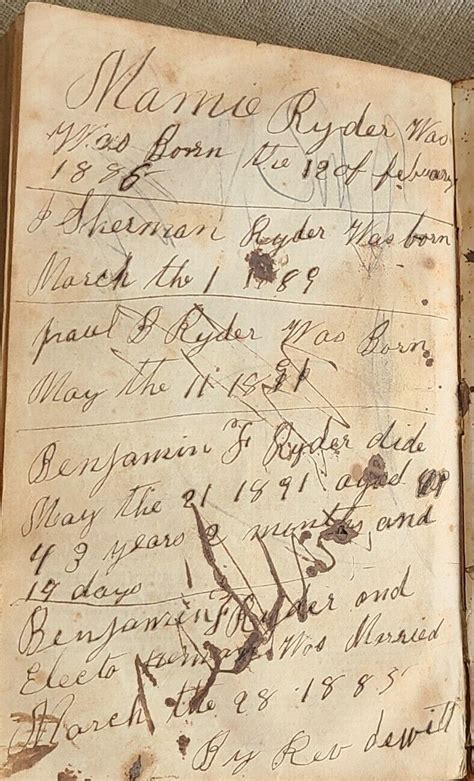 Mamie Ryder Was
Was Born the 12 of febuary
1886
Sherman Ryder Was born
March the 1 1889
paul B Ryder Was Born
May the 11 1891
Benjamin F Ryder dide
May the 21 1891 aged
43 years 2 months and
19 days
Benjamin F Ryder and
Electo Was Married
March the 28 1885
By Rev dewitt